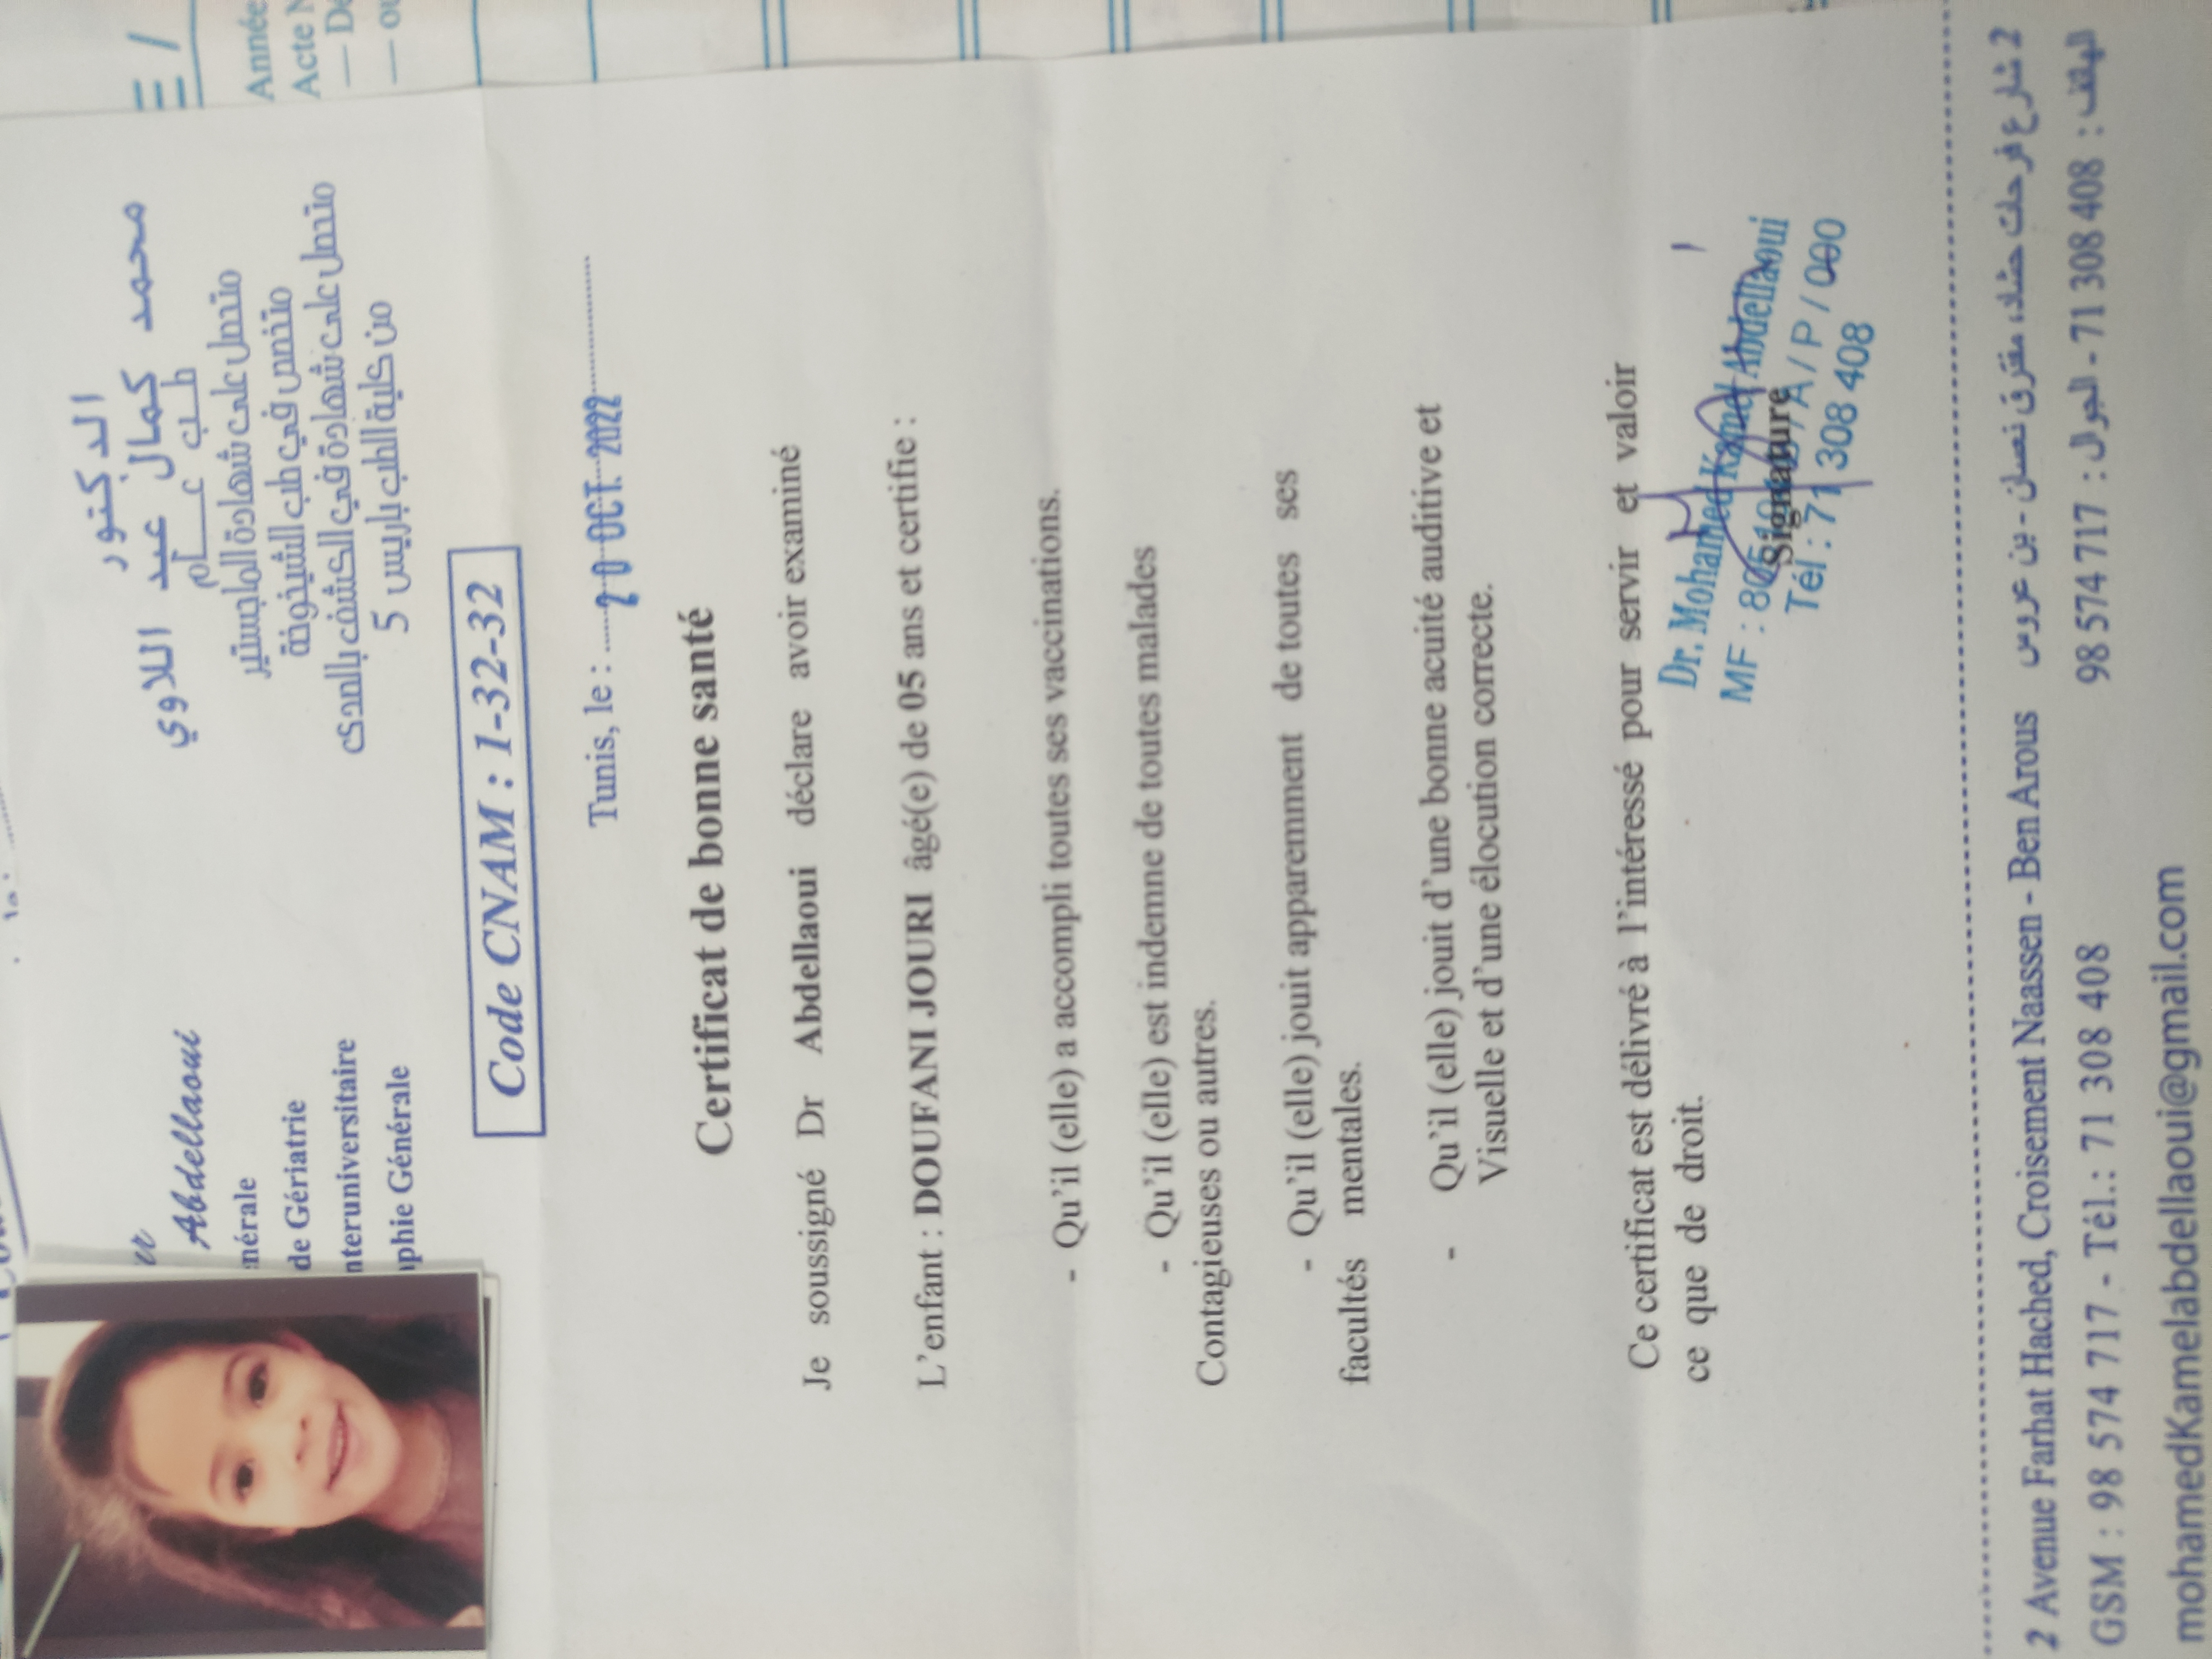 الدكتور
محمد كمال عبد اللاوي
طب عام
متحصل على شهادة الماجستير
مختص في طب الشيخوخة
متحصل على شهادة في الكشف بالصدى
من كلية الطب باريس 5
Abdellaoui
nérale
de Gériatrie
nteruniversitaire
phie Générale
Année
Acte N
Code CNAM : 1-32-32
Tunis, le : 20 OCT. 2022
Certificat de bonne santé
Je soussigné Dr Abdellaoui déclare avoir examiné
L'enfant : DOUFANI JOURI âgé(e) de 05 ans et certifie :
- Qu'il (elle) a accompli toutes ses vaccinations.
- Qu'il (elle) est indemne de toutes malades
Contagieuses ou autres.
- Qu'il (elle) jouit apparemment de toutes ses
facultés mentales.
- Qu'il (elle) jouit d'une bonne acuité auditive et
Visuelle et d'une élocution correcte.
Ce certificat est délivré à l'intéressé pour servir et valoir
ce que de droit.
Dr. Mohamed Kamel Abdellaoui
Signature
Tél : 71 308 408
2 Avenue Farhat Hached, Croisement Naassen - Ben Arous 2 شارع فرحات حشاد، مفترق نعسان - بن عروس
GSM : 98 574 717 - Tél.: 71 308 408 الهاتف : 408 308 71 - الجوال : 717 574 98
mohamedKamelabdellaoui@gmail.com